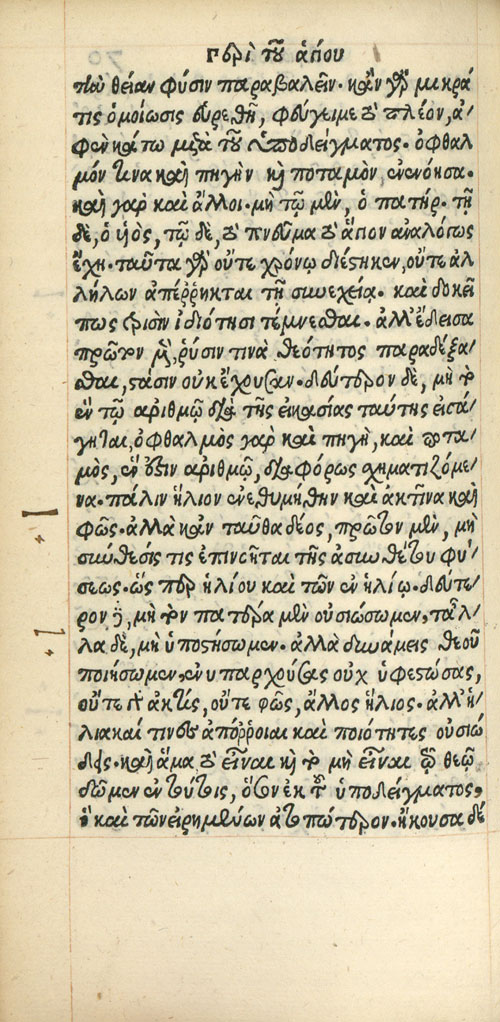 περὶ τοῦ ἁγίου
τὴν θείαν φύσιν παραβαλεῖν. κἂν γὰρ μικρά
τις ὁμοίωσις εὑρεθῇ, φεύγει με τὸ πλέον, ἀ/
φὲν κάτω μετὰ τοῦ ὑποδείγματος. ὀφθαλ
μόν τινα καὶ πηγὴν καὶ ποταμὸν, ἐνενόησα.
καὶ γὰρ καὶ ἄλλοι. μὴ τῷ μὲν, ὁ πατήρ. τῇ
δὲ, ὁ υἱὸς, τῷ δὲ, τὸ πνεῦμα τὸ ἅγιον ἀναλόγως
ἔχῃ. ταῦτα γὰρ οὔτε χρόνῳ διέστηκεν, οὔτε ἀλ
λήλων ἀπέῤῥηκται τῇ συνεχείᾳ. καὶ δοκεῖ
πως τρισὶν ἰδιότησι τέμνεσθαι. ἀλλ' ἔδεισα
πρῶτον μὲν, ῥύσιν τινὰ θεότητος παραδέξα/
σθαι, στάσιν οὐκ ἔχουσαν. δεύτερον δὲ, μὴ τὸ
ἓν τῷ ἀριθμῷ διὰ τῆς εἰκασίας ταύτης εἰσά/
γηται, ὀφθαλμὸς γὰρ καὶ πηγὴ, καὶ ποτα/
μὸς, ἕν ἐστιν ἀριθμῷ, διαφόρως σχηματιζόμε/
να. πάλιν ἥλιον ἐνεθυμήθην καὶ ἀκτῖνα καὶ
φῶς. ἀλλὰ κἀνταῦθα δέος, πρῶτον μὲν, μὴ
σύνθεσίς τις ἐπινοῆται τῆς ἀσυνθέτου φύ/
σεως. ὥσπερ ἡλίου καὶ τῶν ἐν ἡλίῳ. δεύτε/
ρον δὲ, μὴ τὸν πατέρα μὲν οὐσιώσωμεν, τἆλ/
λα δὲ, μὴ ὑποστήσωμεν. ἀλλὰ δυνάμεις θεοῦ
ποιήσωμεν, ἐνυπαρχούσας οὐχ ὑφεστώσας,
οὔτε γὰρ ἀκτὶς, οὔτε φῶς, ἄλλος ἥλιος. ἀλλ' ἡ/
λιακαί τινες ἀπόῤῥοιαι καὶ ποιότητες οὐσιώ
δεις. καὶ ἅμα τὸ εἶναι καὶ τὸ μὴ εἶναι τῷ θεῷ
δῶμεν ἐν τούτοις, ὅσον ἐκ τοῦ ὑποδείγματος,
ὃ καὶ τῶν εἰρημένων ἀτοπώτερον. ἤκουσα δέ